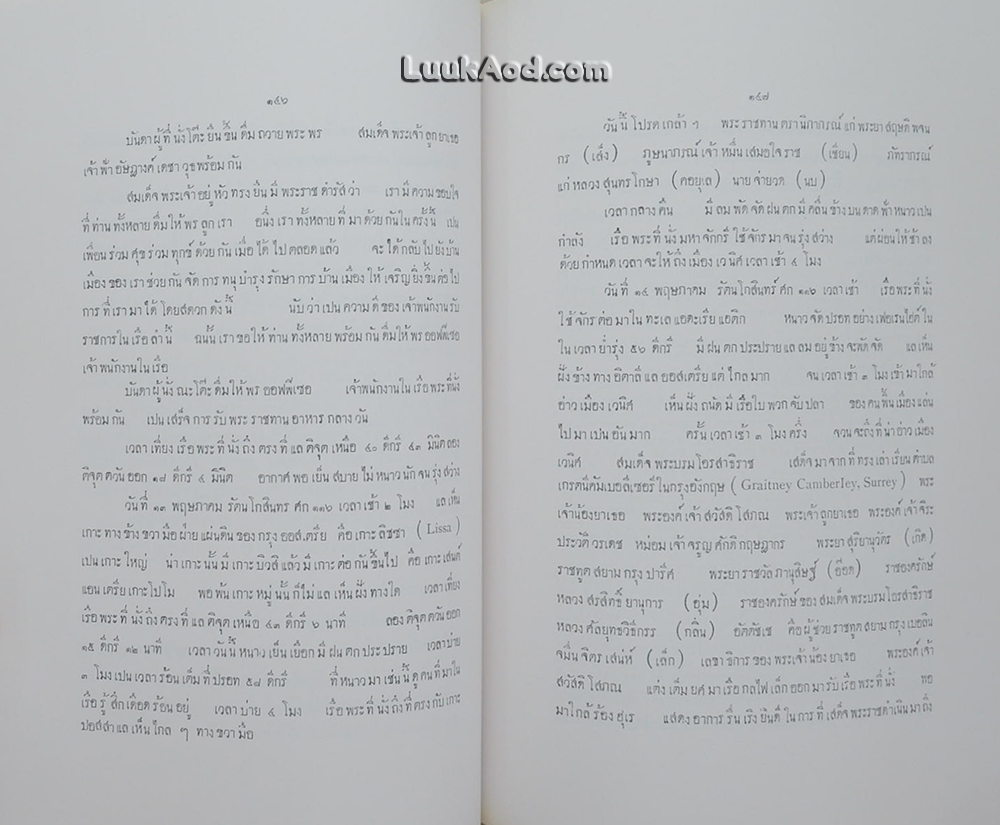 LuukAod.com
๑๔๖
บันดา ผู้ ที่ นั่ง โต๊ะ ยืน ขึ้น ดื่ม ถวาย พระ พร สมเด็จ พระเจ้า ลูก ยาเธอ
เจ้า ฟ้า อัษฎางค์ เดชา วุธ พร้อม กัน
สมเด็จ พระเจ้า อยู่ หัว ทรง ยืน มี พระราช ดำรัส ว่า เรา มี ความ ขอบใจ
ที่ ท่าน ทั้งหลาย ดื่ม ให้ พร ลูก เรา อนึ่ง เรา ทั้งหลาย ที่ มา ด้วย กัน ใน ครั้ง นี้ เปน
เพื่อน ร่วม ศุข ร่วม ทุกข์ ด้วย กัน เมื่อ ได้ ไป ตลอด แล้ว จะ ได้ กลับ ไป ยัง บ้าน
เมือง ของ เรา ช่วย กัน จัด การ ทนุ บำรุง รักษา การ บ้าน เมือง ให้ เจริญ ยิ่ง ขึ้น ต่อ ไป
การ ที่ เรา มา ได้ โดย สดวก ดัง นี้ นับ ว่า เปน ความ ดี ของ เจ้า พนักงาน รับ
ราชการ ใน เรือ ลำ นี้ ฉนั้น เรา ขอ ให้ ท่าน ทั้งหลาย พร้อม กัน ดื่ม ให้ พร ออฟฟิเซอ
เจ้า พนักงาน ใน เรือ
บันดา ผู้ นั่ง ณะ โต๊ะ ดื่ม ให้ พร ออฟฟิเซอ เจ้า พนักงาน ใน เรือ พระ ที่ นั่ง
พร้อม กัน เปน เสร็จ การ รับ พระ ราชทาน อาหาร กลาง วัน
เวลา เที่ยง เรือ พระ ที่ นั่ง ถึง ตรง ที่ แล ติจุด เหนือ ๔๐ ดีกรี ๔๓ มินิต ลอง
ติจุด ตวัน ออก ๑๘ ดีกรี ๔ มินิต อากาศ พอ เย็น สบาย ไม่ หนาว นัก จน รุ่ง สว่าง
วัน ที่ ๑๓ พฤษภาคม รัตน โกสินทร ศก ๑๑๖ เวลา เช้า ๒ โมง แล เห็น
เกาะ ทาง ข้าง ขวา มือ ฝ่าย แผ่นดิน ของ กรุง ออสเตรีย คือ เกาะ ลิซซา (Lissa)
เปน เกาะ ใหญ่ น่า เกาะ นั้น มี เกาะ บิวสิ แล้ว มี เกาะ ต่อ กัน ขึ้น ไป คือ เกาะ เสนต์
แอน เดรีย เกาะ โปโม พอ พ้น เกาะ หมู่ นั้น ก็ ไม่ แล เห็น ฝั่ง ทาง ใด เวลา เที่ยง
เรือ พระ ที่ นั่ง ถึง ตรง ที่ แล ติจุด เหนือ ๔๓ ดีกรี ๖ นาที ลอง ติจุด ตวัน ออก
๑๕ ดีกรี ๑๒ นาที เวลา วัน นี้ หนาว เย็น เยือก มี ฝน ตก ประปราย เวลา บ่าย
๓ โมง เปน เวลา ร้อน เต็ม ที่ ปรอท ๕๘ ดีกรี ที่ หนาว มา เช่น นี้ ดู คน ที่ มา ใน
เรือ รู้ สึก เดือด ร้อน อยู่ เวลา บ่าย ๔ โมง เรือ พระ ที่ นั่ง ถึง ที่ ตรง กับ เกาะ
ปอสสำ แล เห็น ไกล ๆ ทาง ขวา มือ
๑๔๗
วัน นี้ โปรด เกล้า ฯ พระ ราชทาน ตรา นิภาภรณ์ แก่ พระยา สฤษดิ พจน
กร (เส็ง) ภูษนาภรณ์ เจ้า หมื่น เสมอใจ ราช (เชียน) ภัทราภรณ์
แก่ หลวง สุนทร โกษา (คอยุเล) นาย จ่ายวด (นบ)
เวลา กลาง คืน มี ลม พัด จัด ฝน ตก มี คลื่น ข้าง บน ดาด ฟ้า หนาว เปน
กำลัง เรือ พระ ที่ นั่ง มหา จักกรี ใช้ จักร มา จน รุ่ง สว่าง แต่ ผ่อน ให้ ช้า ลง
ด้วย กำหนด เวลา จะ ให้ ถึง เมือง เวนิศ เวลา เช้า ๔ โมง
วัน ที่ ๑๔ พฤษภาคม รัตน โกสินทร์ ศก ๑๑๖ เวลา เช้า เรือ พระ ที่ นั่ง
ใช้ จักร ต่อ มา ใน ทะเล แอดะเรีย แอติก หนาว จัด ปรอท อย่าง เฟอเรนไฮต์ ใน
ใน เวลา ย่ำ รุ่ง ๕๖ ดีกรี มี ฝน ตก ประปราย แล ลม อยู่ ข้าง จะ พัด จัด แล เห็น
ฝั่ง ข้าง ทาง อิตาลี แล ออสเตรีย แต่ ไกล มาก จน เวลา เช้า ๓ โมง เข้า มา ใกล้
อ่าว เมือง เวนิศ เห็น ฝั่ง ถนัด มี เรือ ใบ พวก จับ ปลา ของ คน พื้น เมือง แล่น
ไป มา เปน อัน มาก ครั้น เวลา เช้า ๓ โมง ครึ่ง จวน จะ ถึง ที่ น่า อ่าว เมือง
เวนิศ สมเด็จ พระบรม โอรสาธิราช เสด็จ มา จาก ที่ ทรง เล่า เรียน ตำบล
เกรตนีคัมเบอลีเซอรี ใน กรุง อังกฤษ (Graitney Camberley, Surrey) พระ
เจ้า น้อง ยาเธอ พระองค์ เจ้า สวัสดิ โสภณ พระเจ้า ลูก ยาเธอ พระองค์ เจ้า จิระ
ประวัติ วรเดช หม่อม เจ้า จรูญ ศักดิ กฤษฎากร พระยา สุริยานุวัตร (เกิด)
ราชทูต สยาม กรุง ปารีศ พระยา ราชวัล ภานุสิษฐ์ (อ๊อด) ราชองครักษ์
หลวง สรสิทธิ์ ยานุการ (อุ่ม) ราชองครักษ์ ของ สมเด็จ พระบรม โอรสาธิราช
หลวง ศัลยุทธวิธีกรร (กลิ่น) อัตตัชเช คือ ผู้ ช่วย ราชทูต สยาม กรุง เบอลิน
จมื่น จิตร เสน่ห์ (เล็ก) เลขา ธิการ ของ พระเจ้า น้อง ยาเธอ พระองค์ เจ้า
สวัสดิ โสภณ แต่ง เต็ม ยศ มา เรือ กลไฟ เล็ก ออก มา รับ เรือ พระ ที่ นั่ง พอ
มา ใกล้ ร้อง ฮุเร แสดง อาการ รื่น เริง ยินดี ใน การ ที่ เสด็จ พระราชดำเนิน มา ถึง